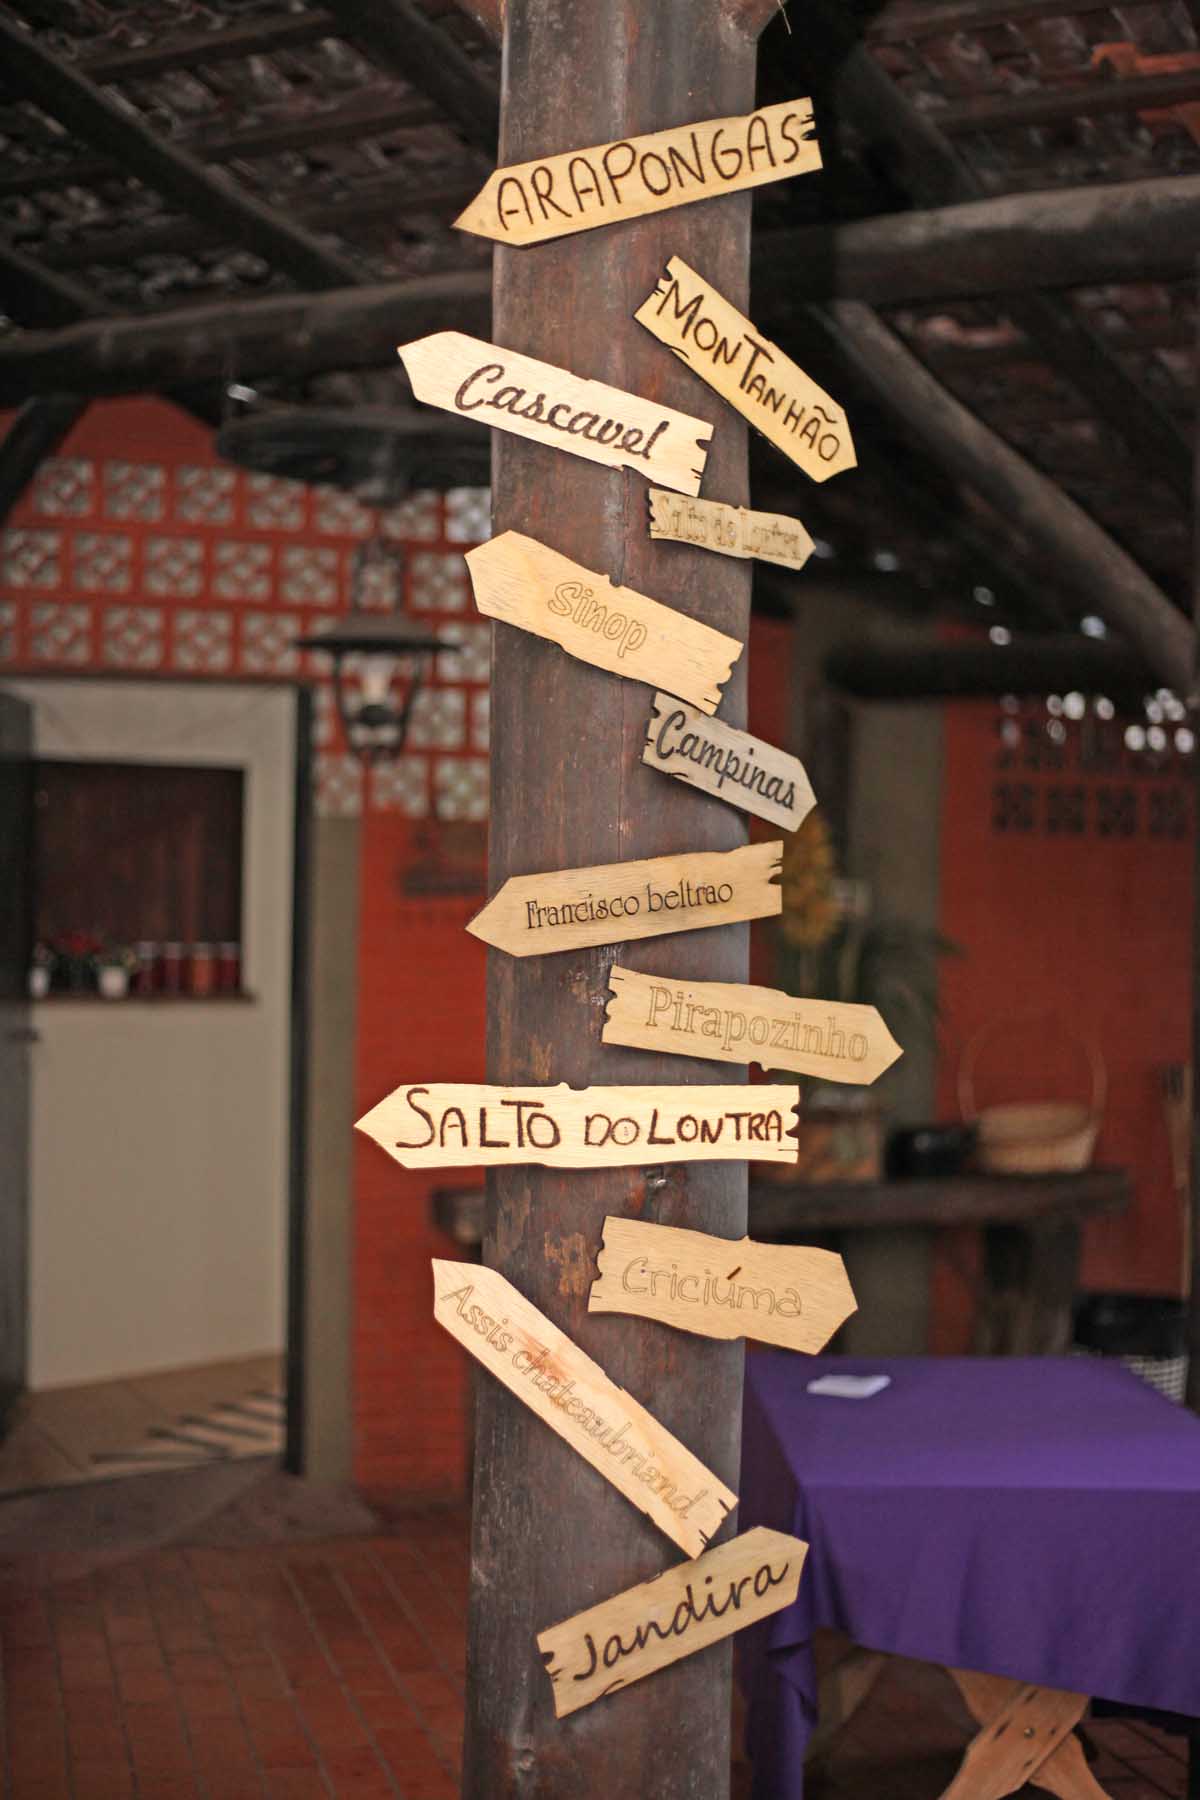 ARAPONGAS
MONTANHÃO
Cascavel
Salto do Lontra
Sinop
Campinas
Francisco beltrao
Pirapozinho
SALTO DO LONTRA
Criciúma
Assis chateaubriand
Jandira